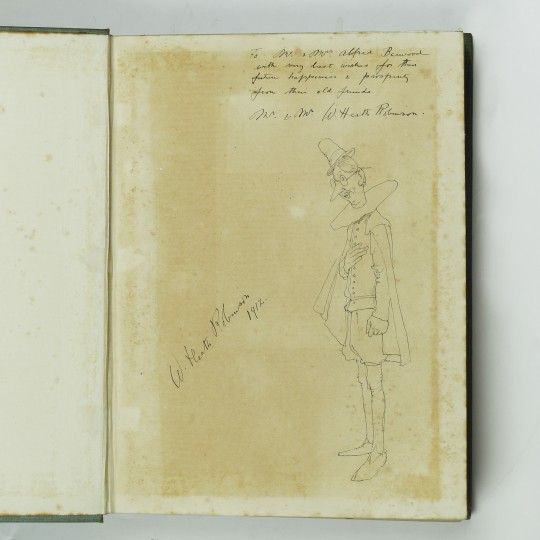 To Mr. & Mrs Alfred
with very best wishes for their
future happiness & prosperity
from their old friends
Mr. & Mrs W Heath Robinson.
W. Heath Robinson
1912.